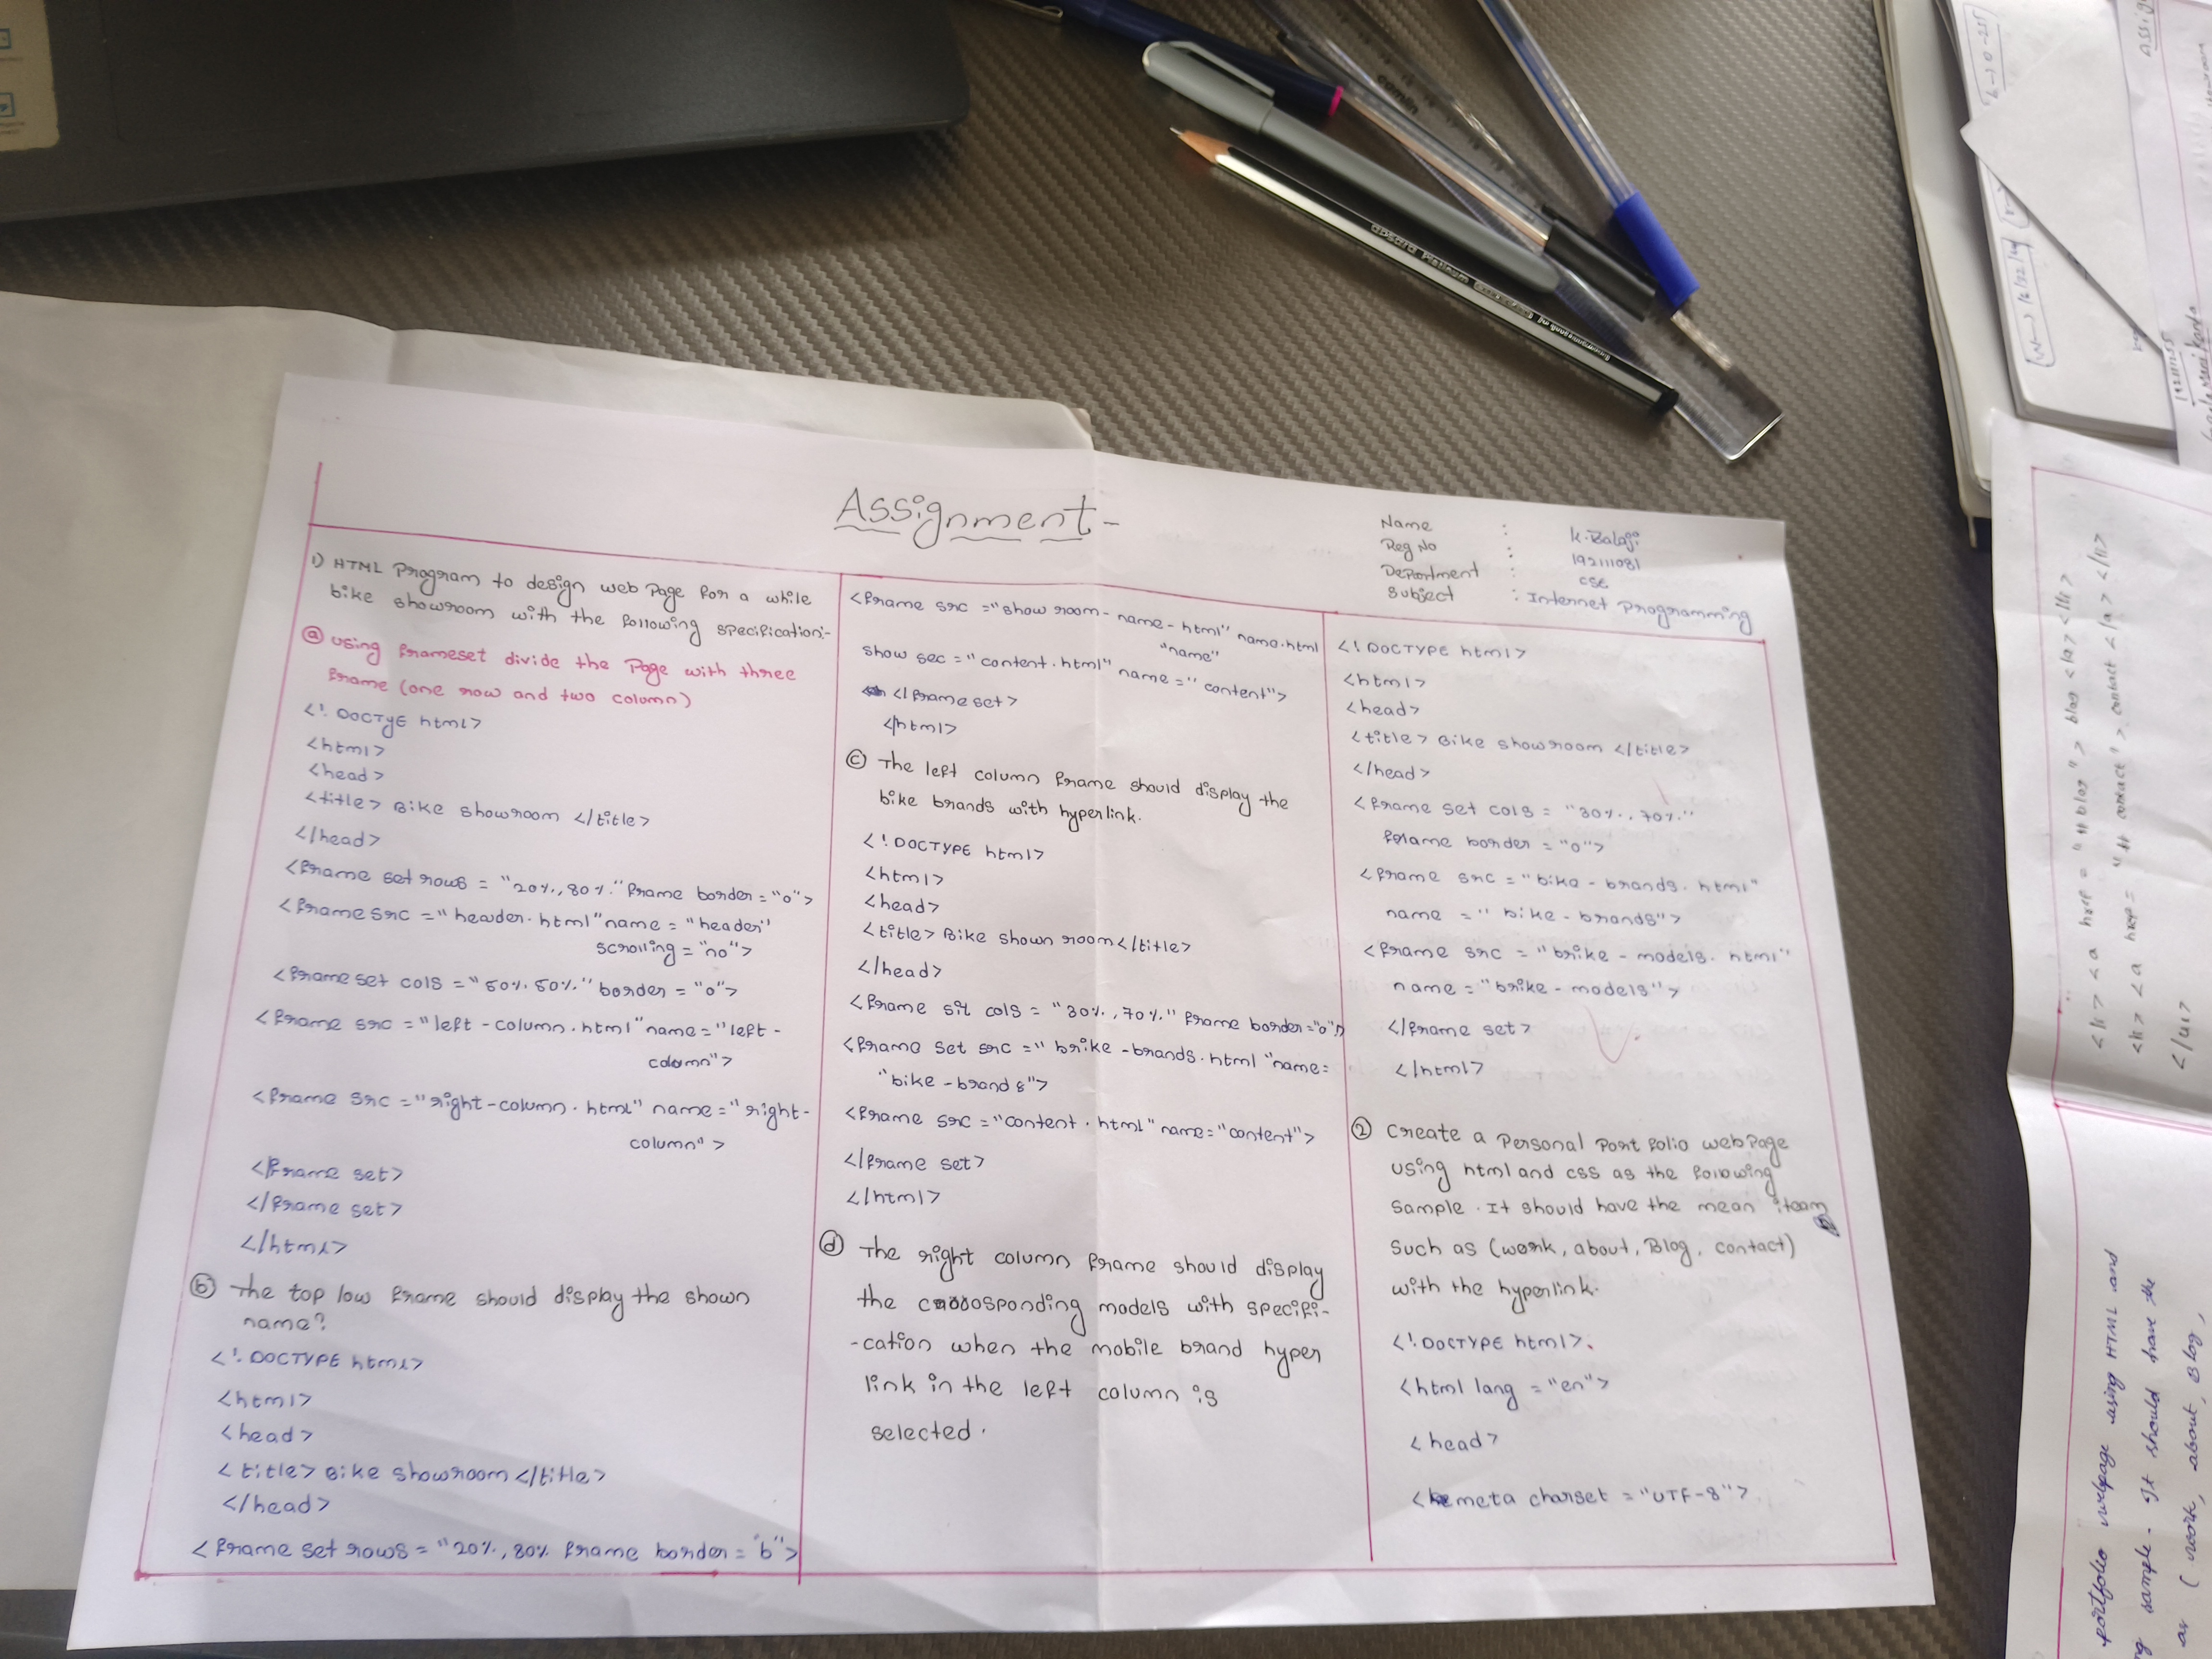 Assignment-
Name : K.Balaji
Reg No : 192111081
Department : CSE
Subject : Internet Programming
1) HTML Program to design web Page for a while
bike showroom with the following specification:-
a Using frameset divide the Page with three
frame (one row and two column)
<! DOCTYE html>
<html>
<head>
<title> Bike showroom </title>
</head>
<frame set rows = "20%, 80%." frame border = "0">
<frame src = "header.html" name = "header"
scrolling = "no">
<frame set cols = "50%. 50%." border = "0">
<frame src = "left-column.html" name = "left-
column">
<frame src = "right-column.html" name = "right-
column" >
</frame set>
</frame set>
</html>
b The top low frame should display the shown
name?
<! DOCTYPE html>
<html>
<head>
<title> Bike showroom </title>
</head>
<frame set rows = "20%, 80% frame border = "b">
<frame src = "show room-name-html" name.html
"name"
show sec = "content.html" name = "content">
</frame set>
</html>
c The left column frame should display the
bike brands with hyperlink.
<! DOCTYPE html>
<html>
<head>
<title> Bike shown room </title>
</head>
<frame sit cols = "30%, 70%." frame border="0">
<frame set src = "brike-brands.html "name=
"bike-brand s">
<frame src = "content.html" name="content">
</frame set>
</html>
d The right column frame should display
the corrosponding models with specifi-
-cation when the mobile brand hyper
link in the left column is
selected.
<! DOCTYPE html>
<html>
<head>
<title> Bike showroom </title>
</head>
<frame set cols = "30%., 70%."
frame border = "0">
<frame src = "bike-brands.html"
name = "bike-brands">
<frame src = "brike-models.html"
name = "brike-models">
</frame set>
</html>
2 Create a Personal Port folio webpage
using html and css as the following
sample. It should have the mean iteam
such as (work, about, Blog, contact)
with the hyperlink.
<! DOCTYPE html>.
<html lang = "en">
<head>
<meta charset = "UTF-8">
apsara Platinum
<li> <a href = "# blog"> blog </a> </li>
<li> <a href = "# contact"> contact </a> </li>
</ul>
portfolio webpage using HTML and
sample. It should have the
as ( work, about, Blog,